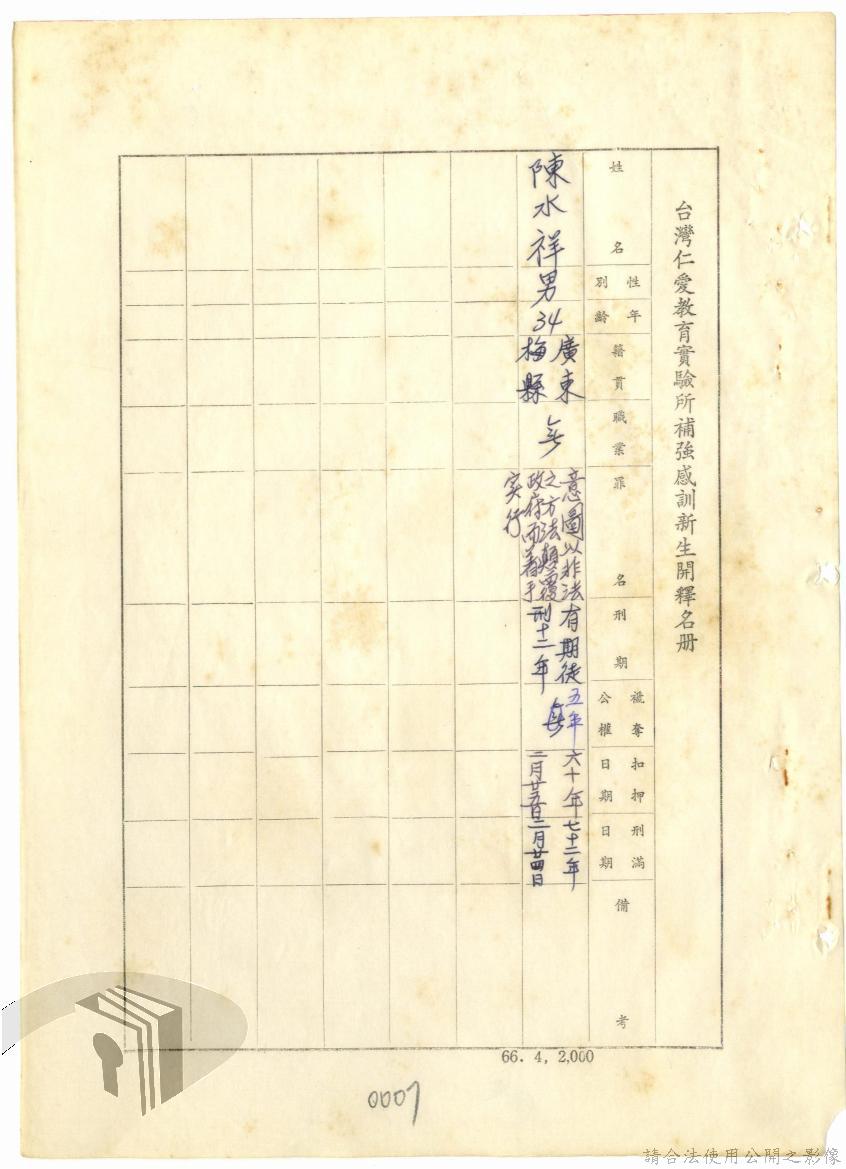 台灣仁愛教育實驗所補強感訓新生開釋名册
姓名
性別
年齡
籍貫
職業
罪名
刑期
褫奪公權
扣押日期
刑滿日期
備考
陳水祥
男
34
廣東
梅縣
無
意圖以非法
之方法顛覆
政府而著手
实行
有期徒
刑十二年
五年
六十年
二月廿五日
七十二年
二月廿四日
66. 4, 2,000
0007
請合法使用公開之影像